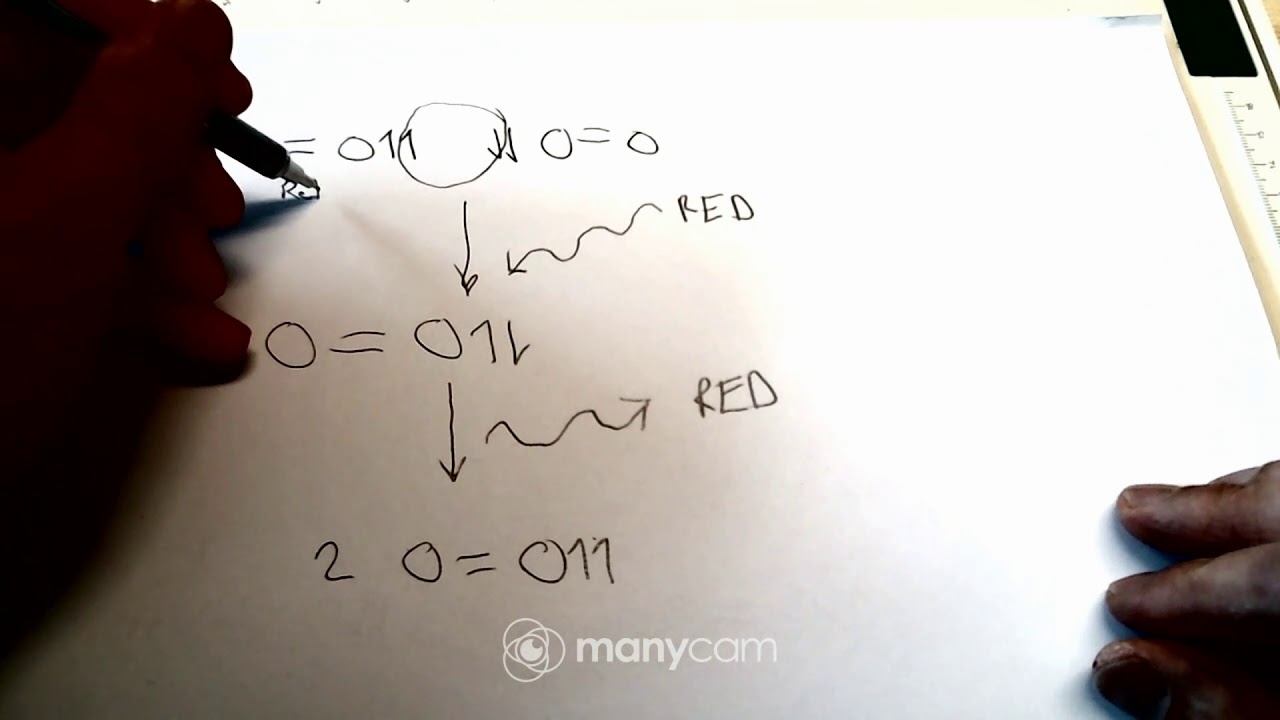 = O11 ↓↓ O=O
Re
RED
O = O1⇂
RED
2 O = O11
manycam